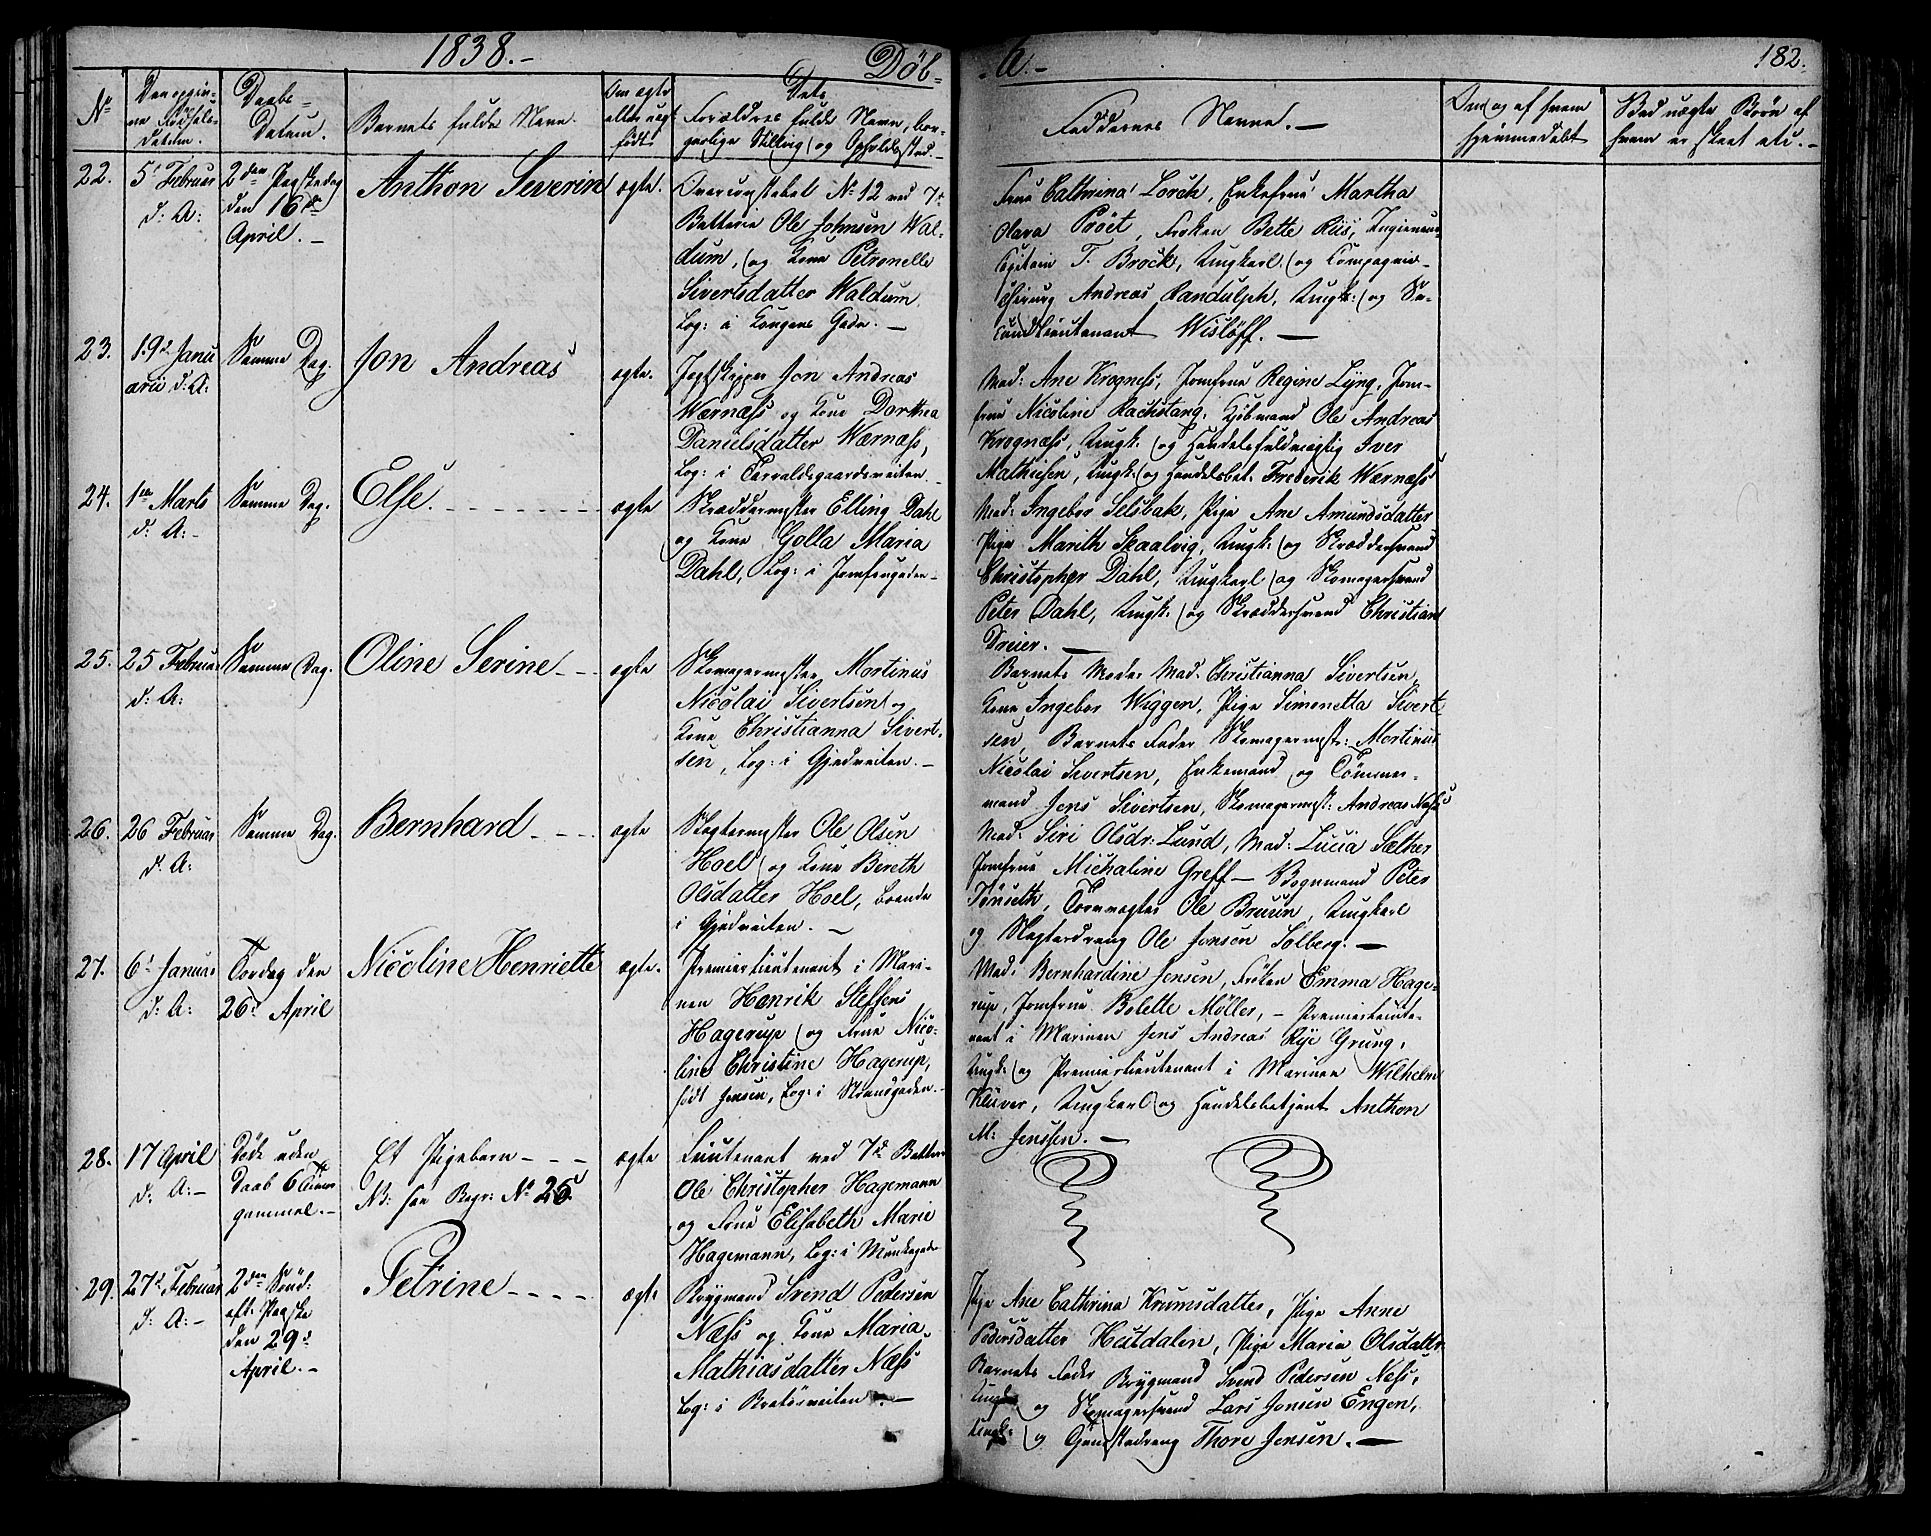 1838.- Døb-
te.- 182.
No
Den opgiv-
ne Fødsels-
datum.
Daabs-
Datum.
Barnets fulde Navn.
Om ægte
eller uægte
født
Dets
Forældres fulde Navn, bor-
gerlige Stilling og Opholdssted.-
Faddernes Navne.-
Om og af hvem
hjemmedøbt
Ved uægte Børn af
hvem er skeet etc.-
22.
5t Februar
d: A:
2den Paaskedag
den 16de
April.-
Anthon Severin
ægte.
Overconstabel No 12 ved 7de
Batterie Ole Johnsen Wal-
dum, og Kone Petronelle
Sivertsdatter Waldum.
Log: i Kongens Gade.-
Frue Cathrina Lorck, Enkefrue Martha
Olava Pröet, Frøken Bette Riis, Ingenieur
Capitain T. Brock, Ungkarl og Compagnie-
chirurg Andreas Randulph, Ungk: og Se-
condlieutenant Wisløff.-
23.
19de Janu
arii d: A:
Samme Dag.
Jon Andreas
ægte.
Jagtskipper Jon Andreas
Wærnæss og Kone Dorthea
Danielsdatter Wærnæss,
Log: i Torvaldsgaardsveiten.-
Mad: Ane Krogness, Jomfrue Regine Lyng, Jom-
frue Nicoline Rachstang, Kjøbmand Ole Andreas
Krognæss, Ungk: og Handelsfuldmægtig Iver
Mathiesen, Ungk: og Handelsbet. Frederik Wærnæss
24.
1ste Marts
d: A:-
Samme Dag.
Else.
ægte
Skræddermester Elling Dahl
og Kone Golla Maria
Dahl, Log: i Jomfrugaden-
Mad: Ingebor Selsbak, Pige Ane Amundsdatter
Pige Marith Skaalvig, Ungk: og Skræddersvend
Christopher Dahl, Ungkarl og Skomagersvend
Peter Dahl, Ungk: og Skræddersvend Christian
Dreier.-
25.
25 Februar
d: A:
Samme Dag.
Oline Serine
ægte
Skomagermester Mortinus
Nicolai Sivertsen og
Kone Christianna Sivert-
sen, Log: i Gjedveiten.-
Barnets Moder Mad: Christianna Sivertsen,
Kone Ingebor Wiggen, Pige Simonetta Sivert-
sen, Barnets Fader Skomagermstr: Mortinus
Nicolai Sivertsen, Enkemand og Tømmer-
mand Jens Sivertsen, Skomagermst: Andreas Næss
26.
26 Februar
d: A:
Samme Dag.
Bernhard
ægte
Slagtermester Ole Olsen
Hoel og Kone Bereth
Olsdatter Hoel, boende
i Gjedveiten.-
Mad: Siri Olsdr: Lund, Mad: Lucia Sæther
Jomfrue Michaline Greff- Bogmand Peter
Tönseth, Ole Bruun, Ungkarl
og Slagterdreng Ole Jonsen Solberg.-
27.
6t Januar
d: A:
Torsdag den
26de April
Nicoline Henriette
ægte.
Premierlieutenant i Mari-
nen Henrik Steffens
Hagerup og Frue Nico-
line Christine Hagerup,
født Jensen, Log: i Strandgaden.-
Mad: Bernhardine Jensen, Frøken Emma Hage-
rup, Jomfrue Bolette Møller,- Premierlieute-
nant i Marinen Jens Andreas Rye Grung,
Ungk: og Premierlieutenant i Marinen Wilhelm
Klüver, Ungkarl og Handelsbetjent Anthon
M: Jenssen.-
28.
17 April
d: A:-
Døde uden
Daab 6 Timer
gammel.-
Et Pigebarn
NB: see Begr: No 26.
ægte
Lieutenant ved 7de Batterie
Ole Christopher Hagemann
og Frue Elisabeth Marie
Hagemann, Log: i Munkegade
29.
27de Februar
d: A:-
2den Sønd:
eft. Paaske
den 29de
April.-
Petrine
ægte
Brygmand Svend Pedersen
Næss og Kone Maria
Mathiasdatter Næss
Log: i Bratørveiten.-
Pige Ane Cathrina Krumsdatter, Pige Anne
Pedersdatter Hutdalin, Pige Maria Olsdatter
Barnets Fader Brygmand Svend Pedersen Næss,
Ungk: og Skomagersvend Lars Jonsen Engen,
Ungk: og Thore Jensen.-